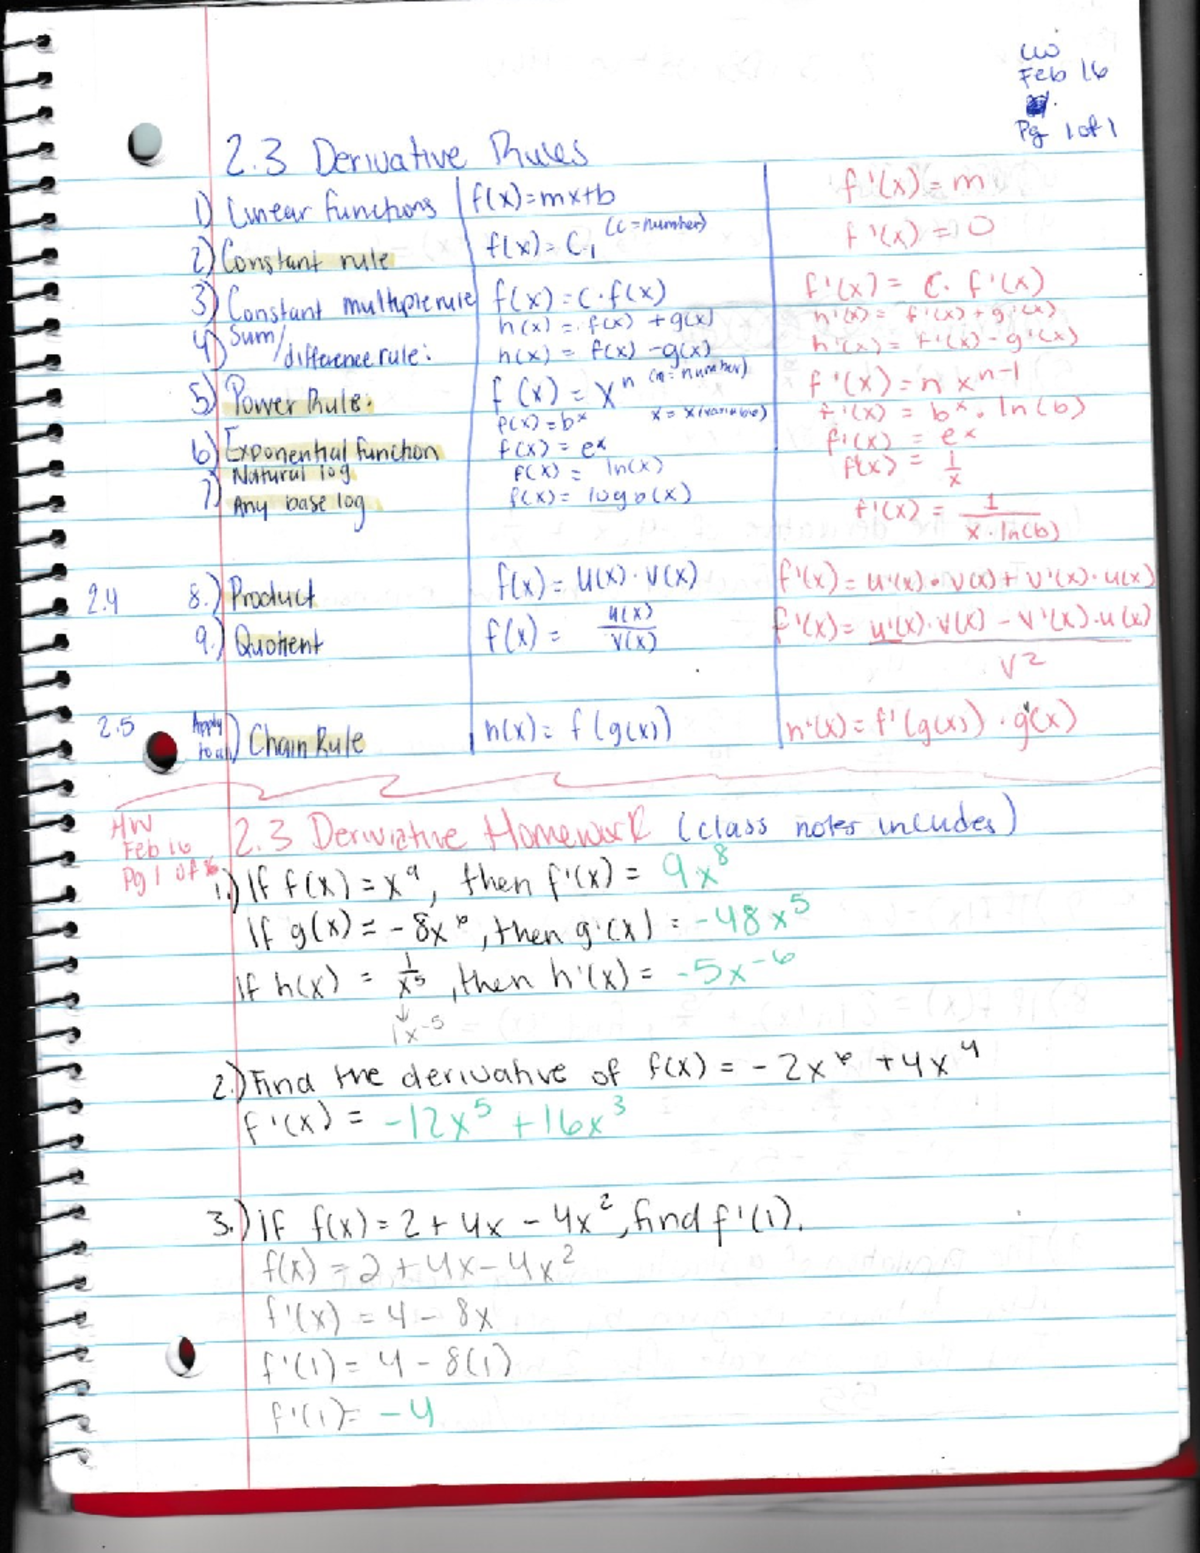 CW
Feb 16
Pg 1 of 1
2.3 Derivative Rules
1) Linear functions f(x)=mx+b f'(x)=m
2) Constant rule f(x)=C, (c=number) f'(x)=0
3) Constant multiple rule f(x)=C·f(x) f'(x)= C·f'(x)
4) Sum/ h(x)=f(x)+g(x) h'(x)=f'(x)+g'(x)
difference rule: h(x)=f(x)-g(x) h'(x)=f'(x)-g'(x)
5) Power Rule: f(x)=xⁿ (n=number) f'(x)=n xⁿ⁻¹
f(x)=bˣ x=x(variable) f'(x)=bˣ·ln(b)
6) Exponential function f(x)=eˣ f'(x)=eˣ
7) Natural log f(x)=ln(x) f(x)=1/x
Any base log f(x)=logb(x) f'(x)=1/x·ln(b)
2.4 8.) Product f(x)=u(x)·v(x) f'(x)=u'(x)·v(x)+v'(x)·u(x)
9.) Quotient f(x)=u(x)/v(x) f'(x)=u'(x)·v(x)-v'(x)·u(x)/v²
2.5 Apply to all) Chain Rule h(x)=f(g(x)) h'(x)=f'(g(x))·g'(x)
HW
Feb 16
Pg 1 of
2.3 Derivative Homework (class notes includes)
1.) If f(x)=x⁹, then f'(x)= 9x⁸
If g(x)=-8x⁶, then g'(x)=-48x⁵
If h(x)=1/x⁵, then h'(x)=-5x⁻⁶
↓
1x⁻⁵
2.) Find the derivative of f(x)=-2x⁶+4x⁴
f'(x)=-12x⁵+16x³
3.) if f(x)=2+4x-4x², find f'(1).
f(x)=2+4x-4x²
f'(x)=4-8x
f'(1)=4-8(1)
f'(1)=-4